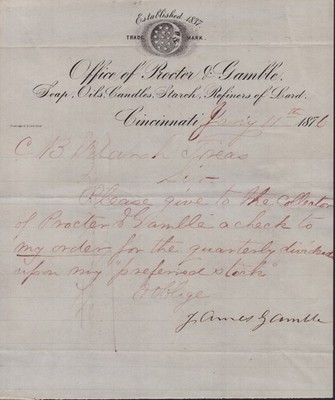 Established 1837
TRADE MARK.
Office of Procter & Gamble.
Soap, Oils, Candles, Starch, Refiners of Lard.
Cincinnati 11th 1876
C B Marsh Treas
Sir
Please give to the Collector
of Procter & Gamble a check to
my order for the quarterly dividend
upon my "preferred stock"
& Oblige
James Gamble